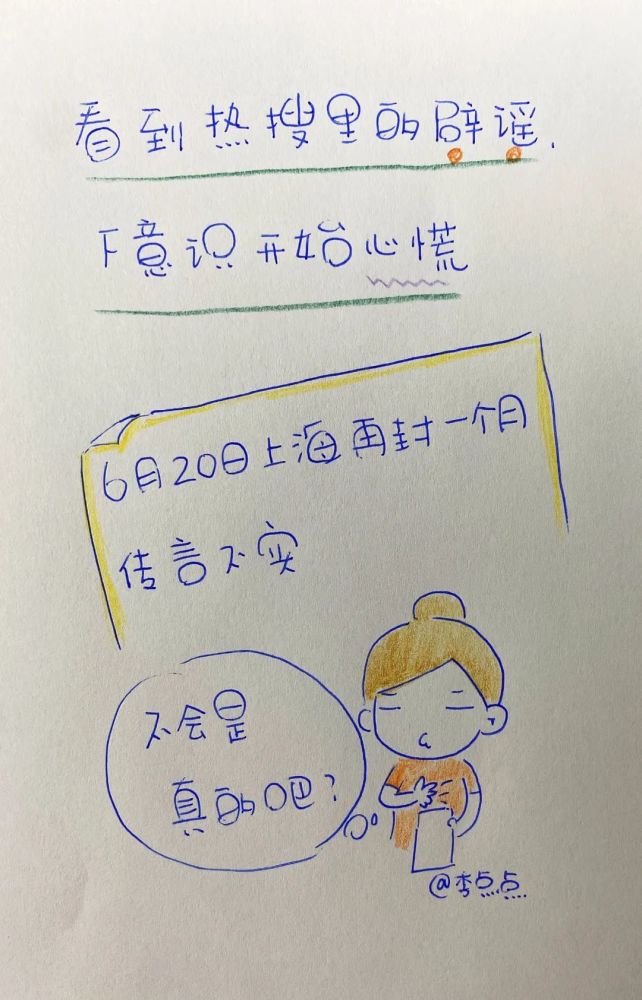 看到热搜里的辟谣.
下意识开始心慌
6月20日上海再封一个月
传言不实
不会是
真的吧?
@李点点